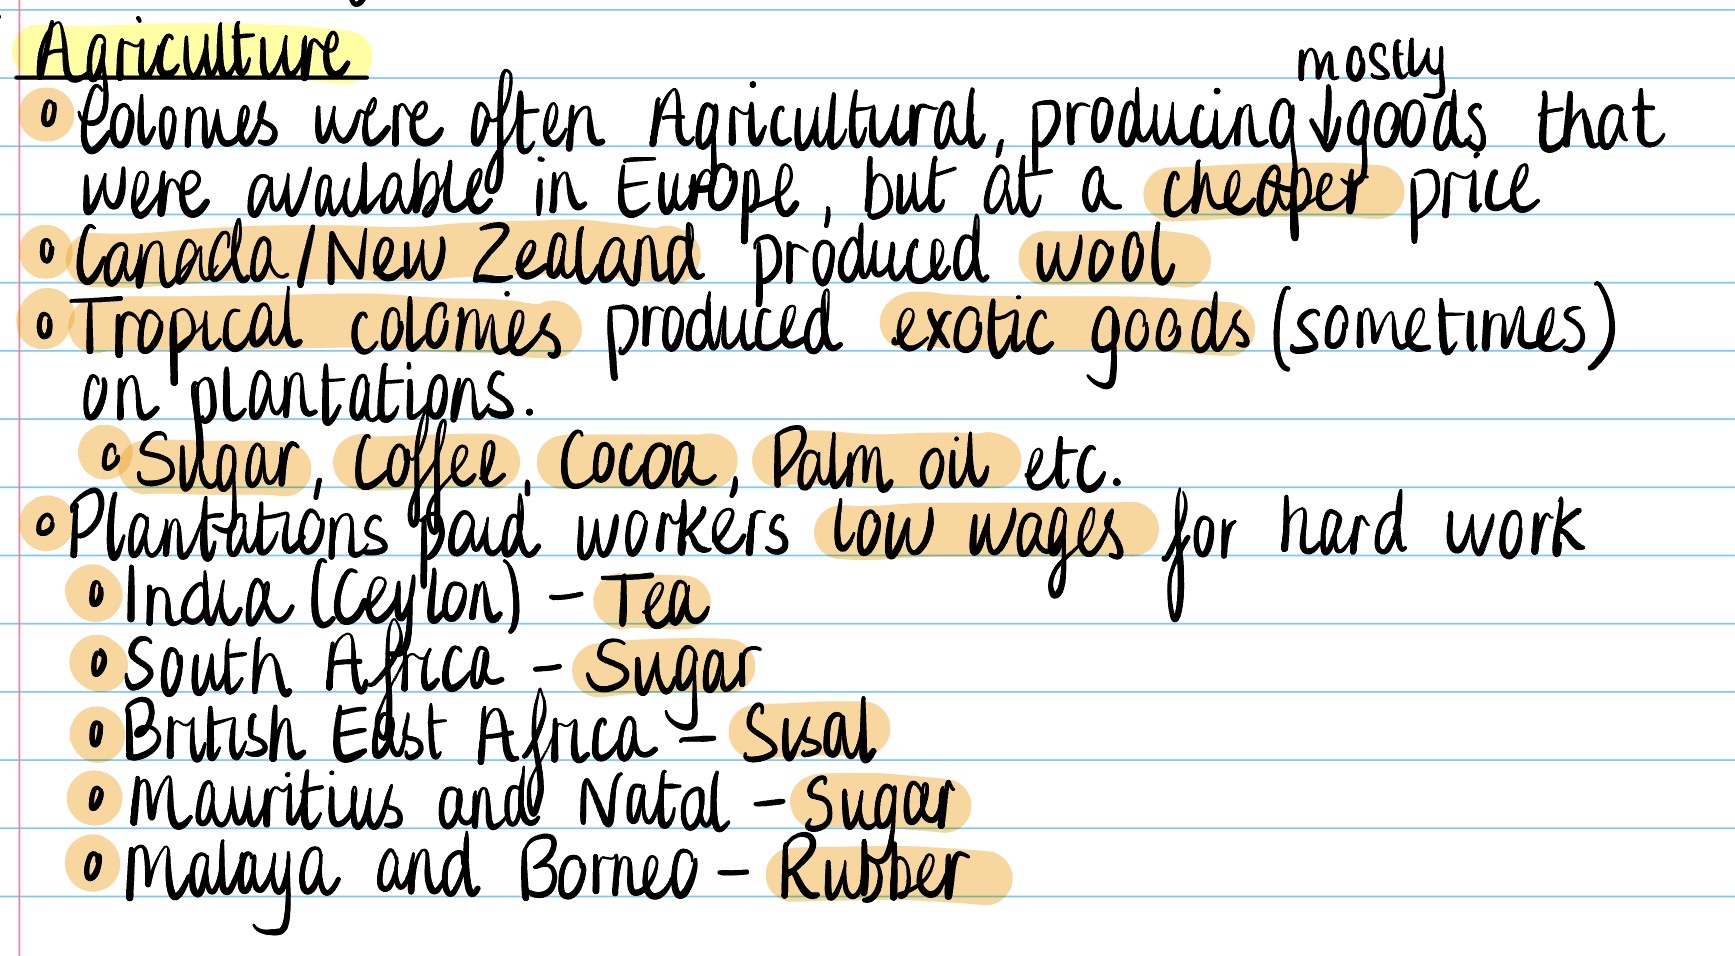 Agriculture
mostly
Colonies were often Agricultural, producing ↓ goods that
were available in Europe, but at a cheaper price
Canada/New Zealand produced wool
Tropical colonies produced exotic goods (sometimes)
on plantations.
Sugar, Coffee, Cocoa, Palm oil etc.
Plantations paid workers low wages for hard work
India (Ceylon) – Tea
South Africa – Sugar
British East Africa – Sisal
Mauritius and Natal – Sugar
Malaya and Borneo – Rubber